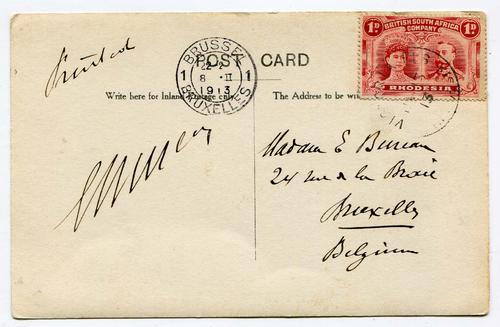 Printed
POST CARD
Write here for Inland
The Address to be
BRUSSEL
1 1
8 II
1913
BRUXELLES
1D 1D
BRITISH SOUTH AFRICA
COMPANY
RHODESIA
Madam E
24 rue de la
Bruxelles
Belgium